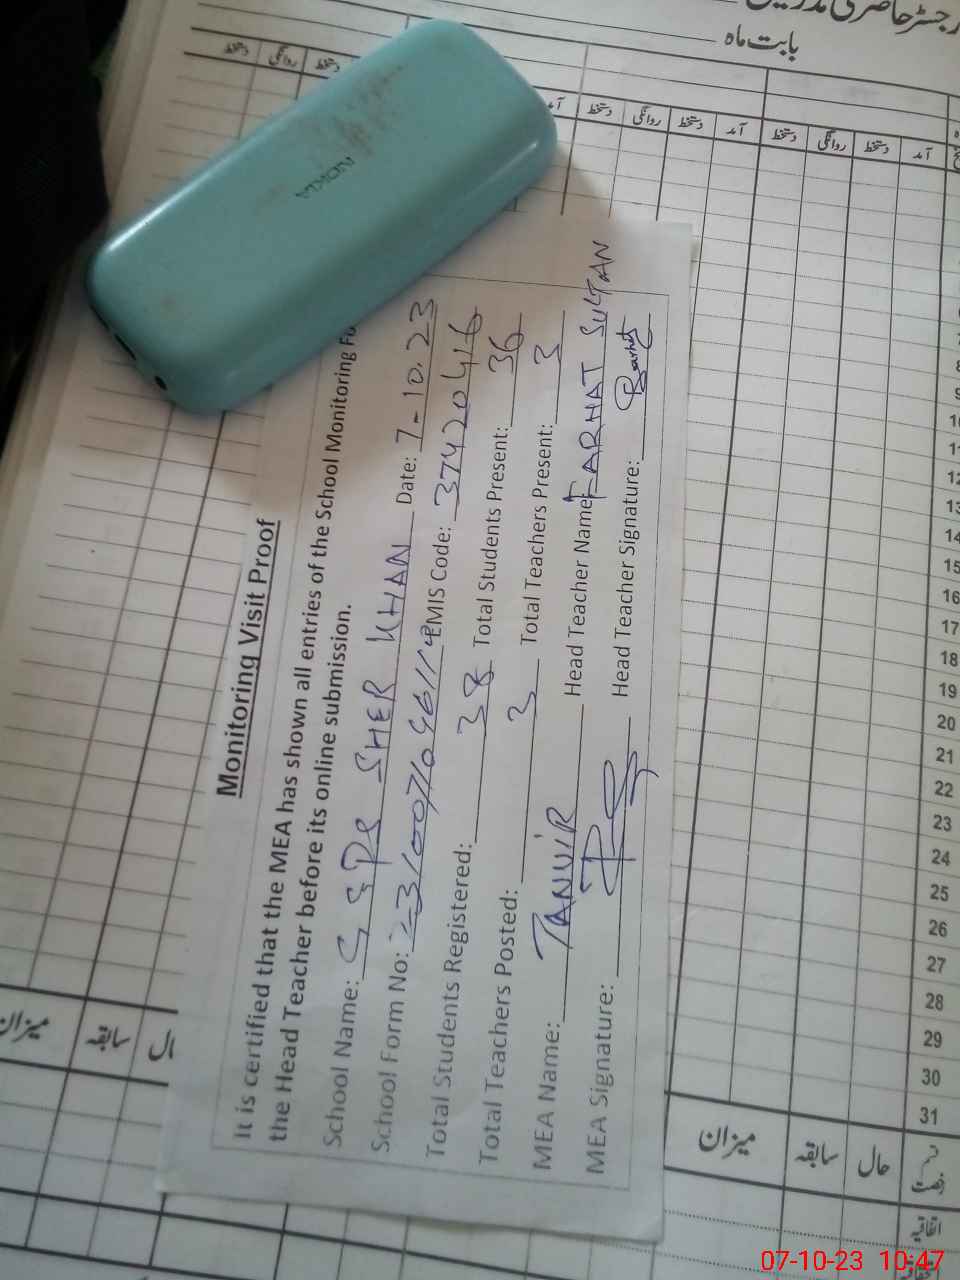 رجسٹر حاضری مدرسین
بابت ماه
دستخط روانگی دستخط
آمد دستخط روانگی دستخط آمد دستخط روانگی دستخط آمد
NOKIA
Monitoring Visit Proof
It is certified that the MEA has shown all entries of the School Monitoring
the Head Teacher before its online submission.
School Name: SHER KHAN Date: 7-10.23
School Form No: EMIS Code: 37420416
Total Students Registered: 38 Total Students Present: 36
Total Teachers Posted: 3 Total Teachers Present: 3
MEA Name: TANVIR Head Teacher Name: FARHAT SULTAN
MEA Signature: Head Teacher Signature:
8
9
10
11
12
13
14
15
16
17
18
19
20
21
22
23
24
25
26
27
28
29
30
31
میزان سابقہ حال
میزان سابقہ حال
اتفاقیہ
07-10-23 10:47